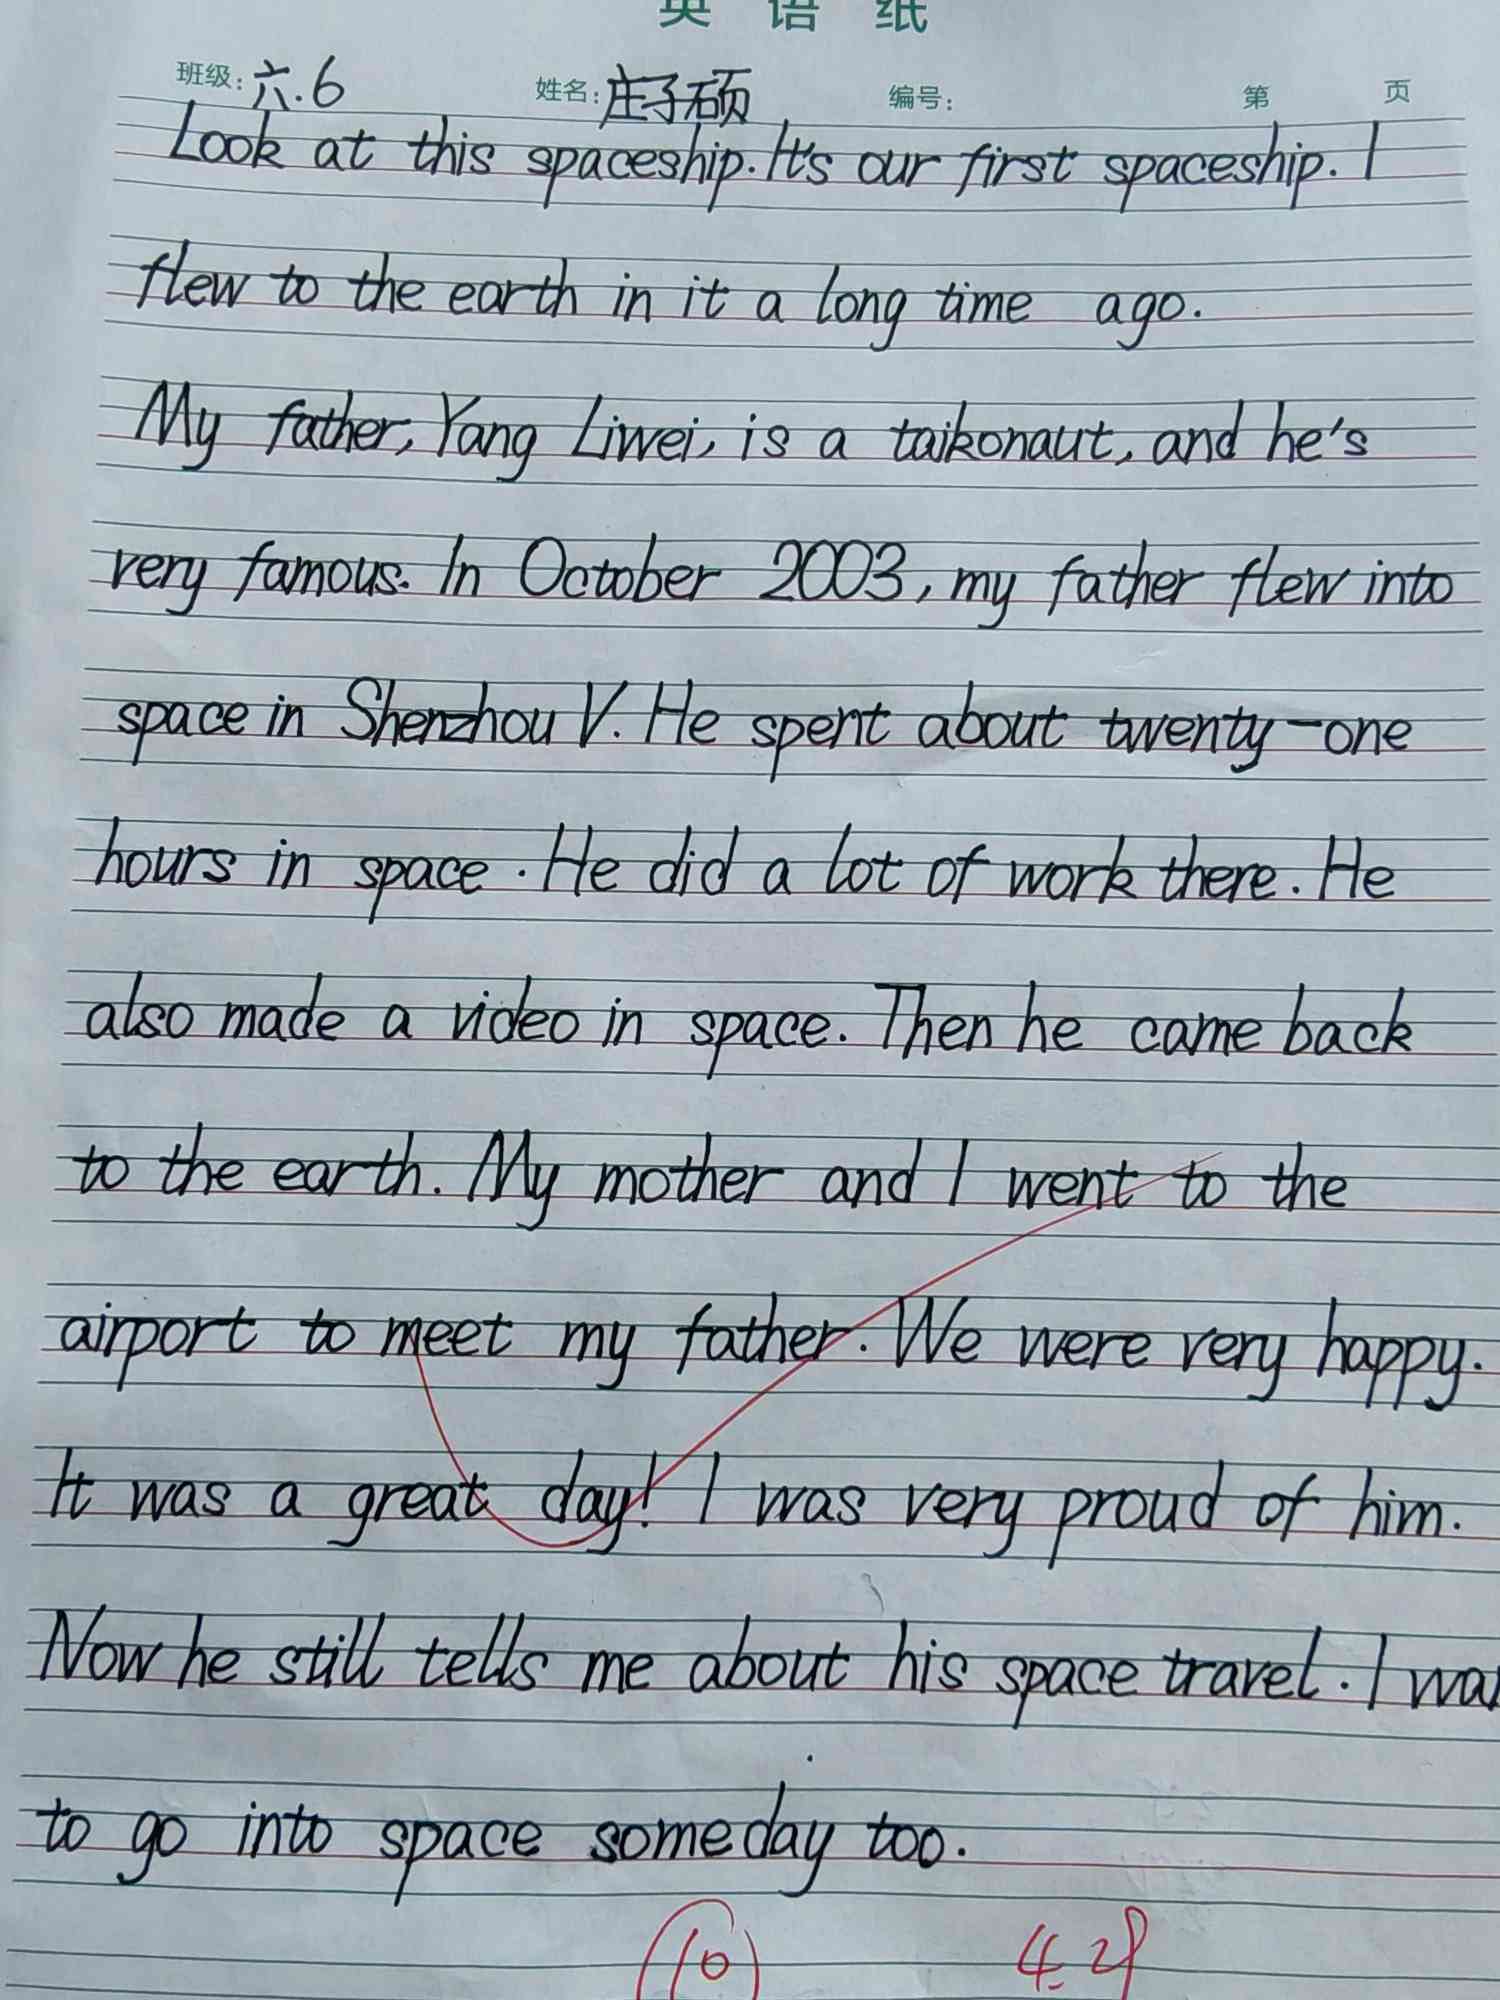 英 语 纸
班级: 六.6 姓名: 庄子硕 编号: 第 页
Look at this spaceship. It's our first spaceship. I
flew to the earth in it a long time ago.
My father, Yang Liwei, is a taikonaut, and he's
very famous. In October 2003, my father flew into
space in Shenzhou V. He spent about twenty-one
hours in space. He did a lot of work there. He
also made a video in space. Then he came back
to the earth. My mother and I went to the
airport to meet my father. We were very happy.
It was a great day! I was very proud of him.
Now he still tells me about his space travel. I wa
to go into space someday too.
10